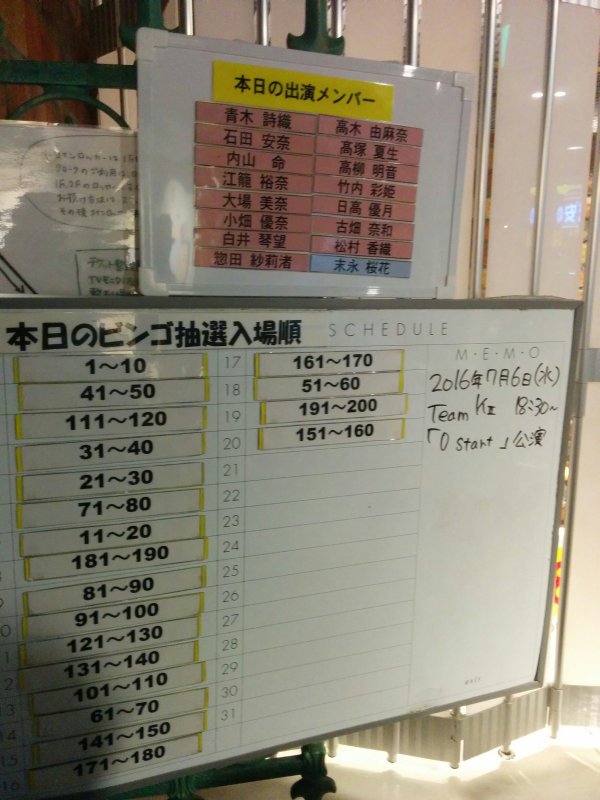 本日の出演メンバー
青木 詩織
石田 安奈
内山 命
江籠 裕奈
大場 美奈
小畑 優奈
白井 琴望
惣田 紗莉渚
高木 由麻奈
高塚 夏生
高柳 明音
竹内 彩姫
日高 優月
古畑 奈和
松村 香織
末永 桜花
本日のビンゴ抽選入場順
SCHEDULE
1〜10
41〜50
111〜120
31〜40
21〜30
71〜80
11〜20
181〜190
81〜90
91〜100
121〜130
131〜140
101〜110
61〜70
141〜150
171〜180
17 161〜170
18 51〜60
19 191〜200
20 151〜160
21
22
23
24
25
26
27
28
29
30
31
M・E・M・O
2016年7月6日(水)
Team KⅡ 18:30〜
「0 start」公演